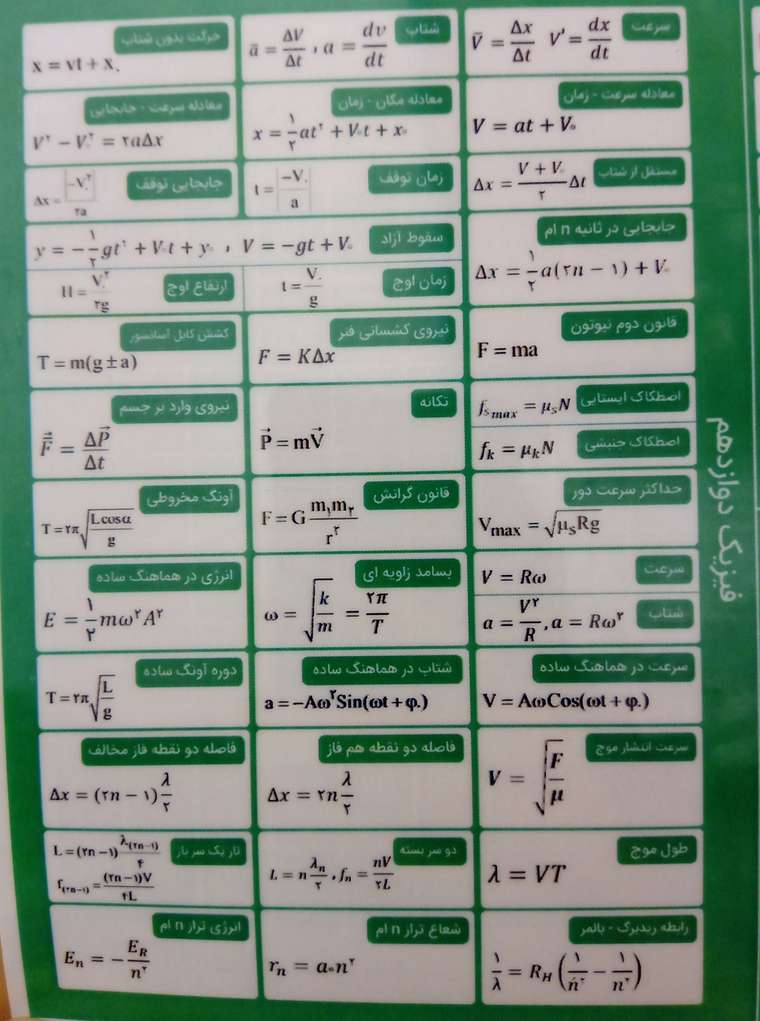 فیزیک دوازدهم
سرعت
V̄ = Δx/Δt   V' = dx/dt
شتاب
ā = ΔV/Δt , a = dv/dt
حرکت بدون شتاب
x = vt + x.
معادله سرعت - زمان
V = at + V₀
معادله مکان - زمان
x = ۱/۲ at² + V₀t + x₀
معادله سرعت - جابجایی
V² − V₀² = ۲aΔx
مستقل از شتاب
Δx = (V + V₀)/۲ Δt
زمان توقف
t = |−V.|/a
جابجایی توقف
Δx = |−V.²|/۲a
جابجایی در ثانیه n ام
Δx = ۱/۲ a(۲n − ۱) + V₀
سقوط آزاد
y = −۱/۲ gt² + V₀t + y₀ , V = −gt + V₀
زمان اوج
t = V./g
ارتفاع اوج
H = V.²/۲g
قانون دوم نیوتون
F = ma
نیروی کشسانی فنر
F = KΔx
کشش کابل آسانسور
T = m(g ± a)
اصطکاک ایستایی
fₛ max = μₛN
اصطکاک جنبشی
fₖ = μₖN
تکانه
P⃗ = mV⃗
نیروی وارد بر جسم
F⃗ = ΔP⃗/Δt
حداکثر سرعت دور
Vmax = √(μₛRg)
قانون گرانش
F = G m₁m₂/r²
آونگ مخروطی
T = ۲π√(L cosα/g)
سرعت
V = Rω
شتاب
a = V²/R , a = Rω²
بسامد زاویه ای
ω = √(k/m) = ۲π/T
انرژی در هماهنگ ساده
E = ۱/۲ mω²A²
سرعت در هماهنگ ساده
V = AωCos(ωt + φ.)
شتاب در هماهنگ ساده
a = −Aω²Sin(ωt + φ.)
دوره آونگ ساده
T = ۲π√(L/g)
سرعت انتشار موج
V = √(F/μ)
فاصله دو نقطه هم فاز
Δx = ۲n λ/۲
فاصله دو نقطه فاز مخالف
Δx = (۲n − ۱) λ/۲
طول موج
λ = VT
دو سر بسته
L = n λₙ/۲ , fₙ = nV/۲L
تار یک سر باز
L = (۲n − ۱) λ(۲n−۱)/۴
f(۲n−۱) = (۲n−۱)V/۴L
رابطه ریدبرگ - بالمر
۱/λ = R_H (۱/n'² − ۱/n²)
شعاع تراز n ام
rₙ = a₀n²
انرژی تراز n ام
Eₙ = −E_R/n²